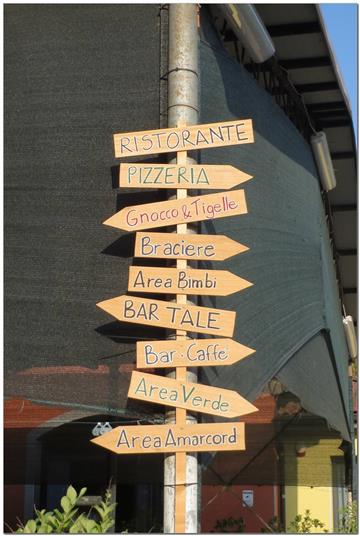 RISTORANTE
PIZZERIA
Gnocco & Tigelle
Braciere
Area Bimbi
BAR TALE
Bar-Caffè
Area Verde
Area Amarcord